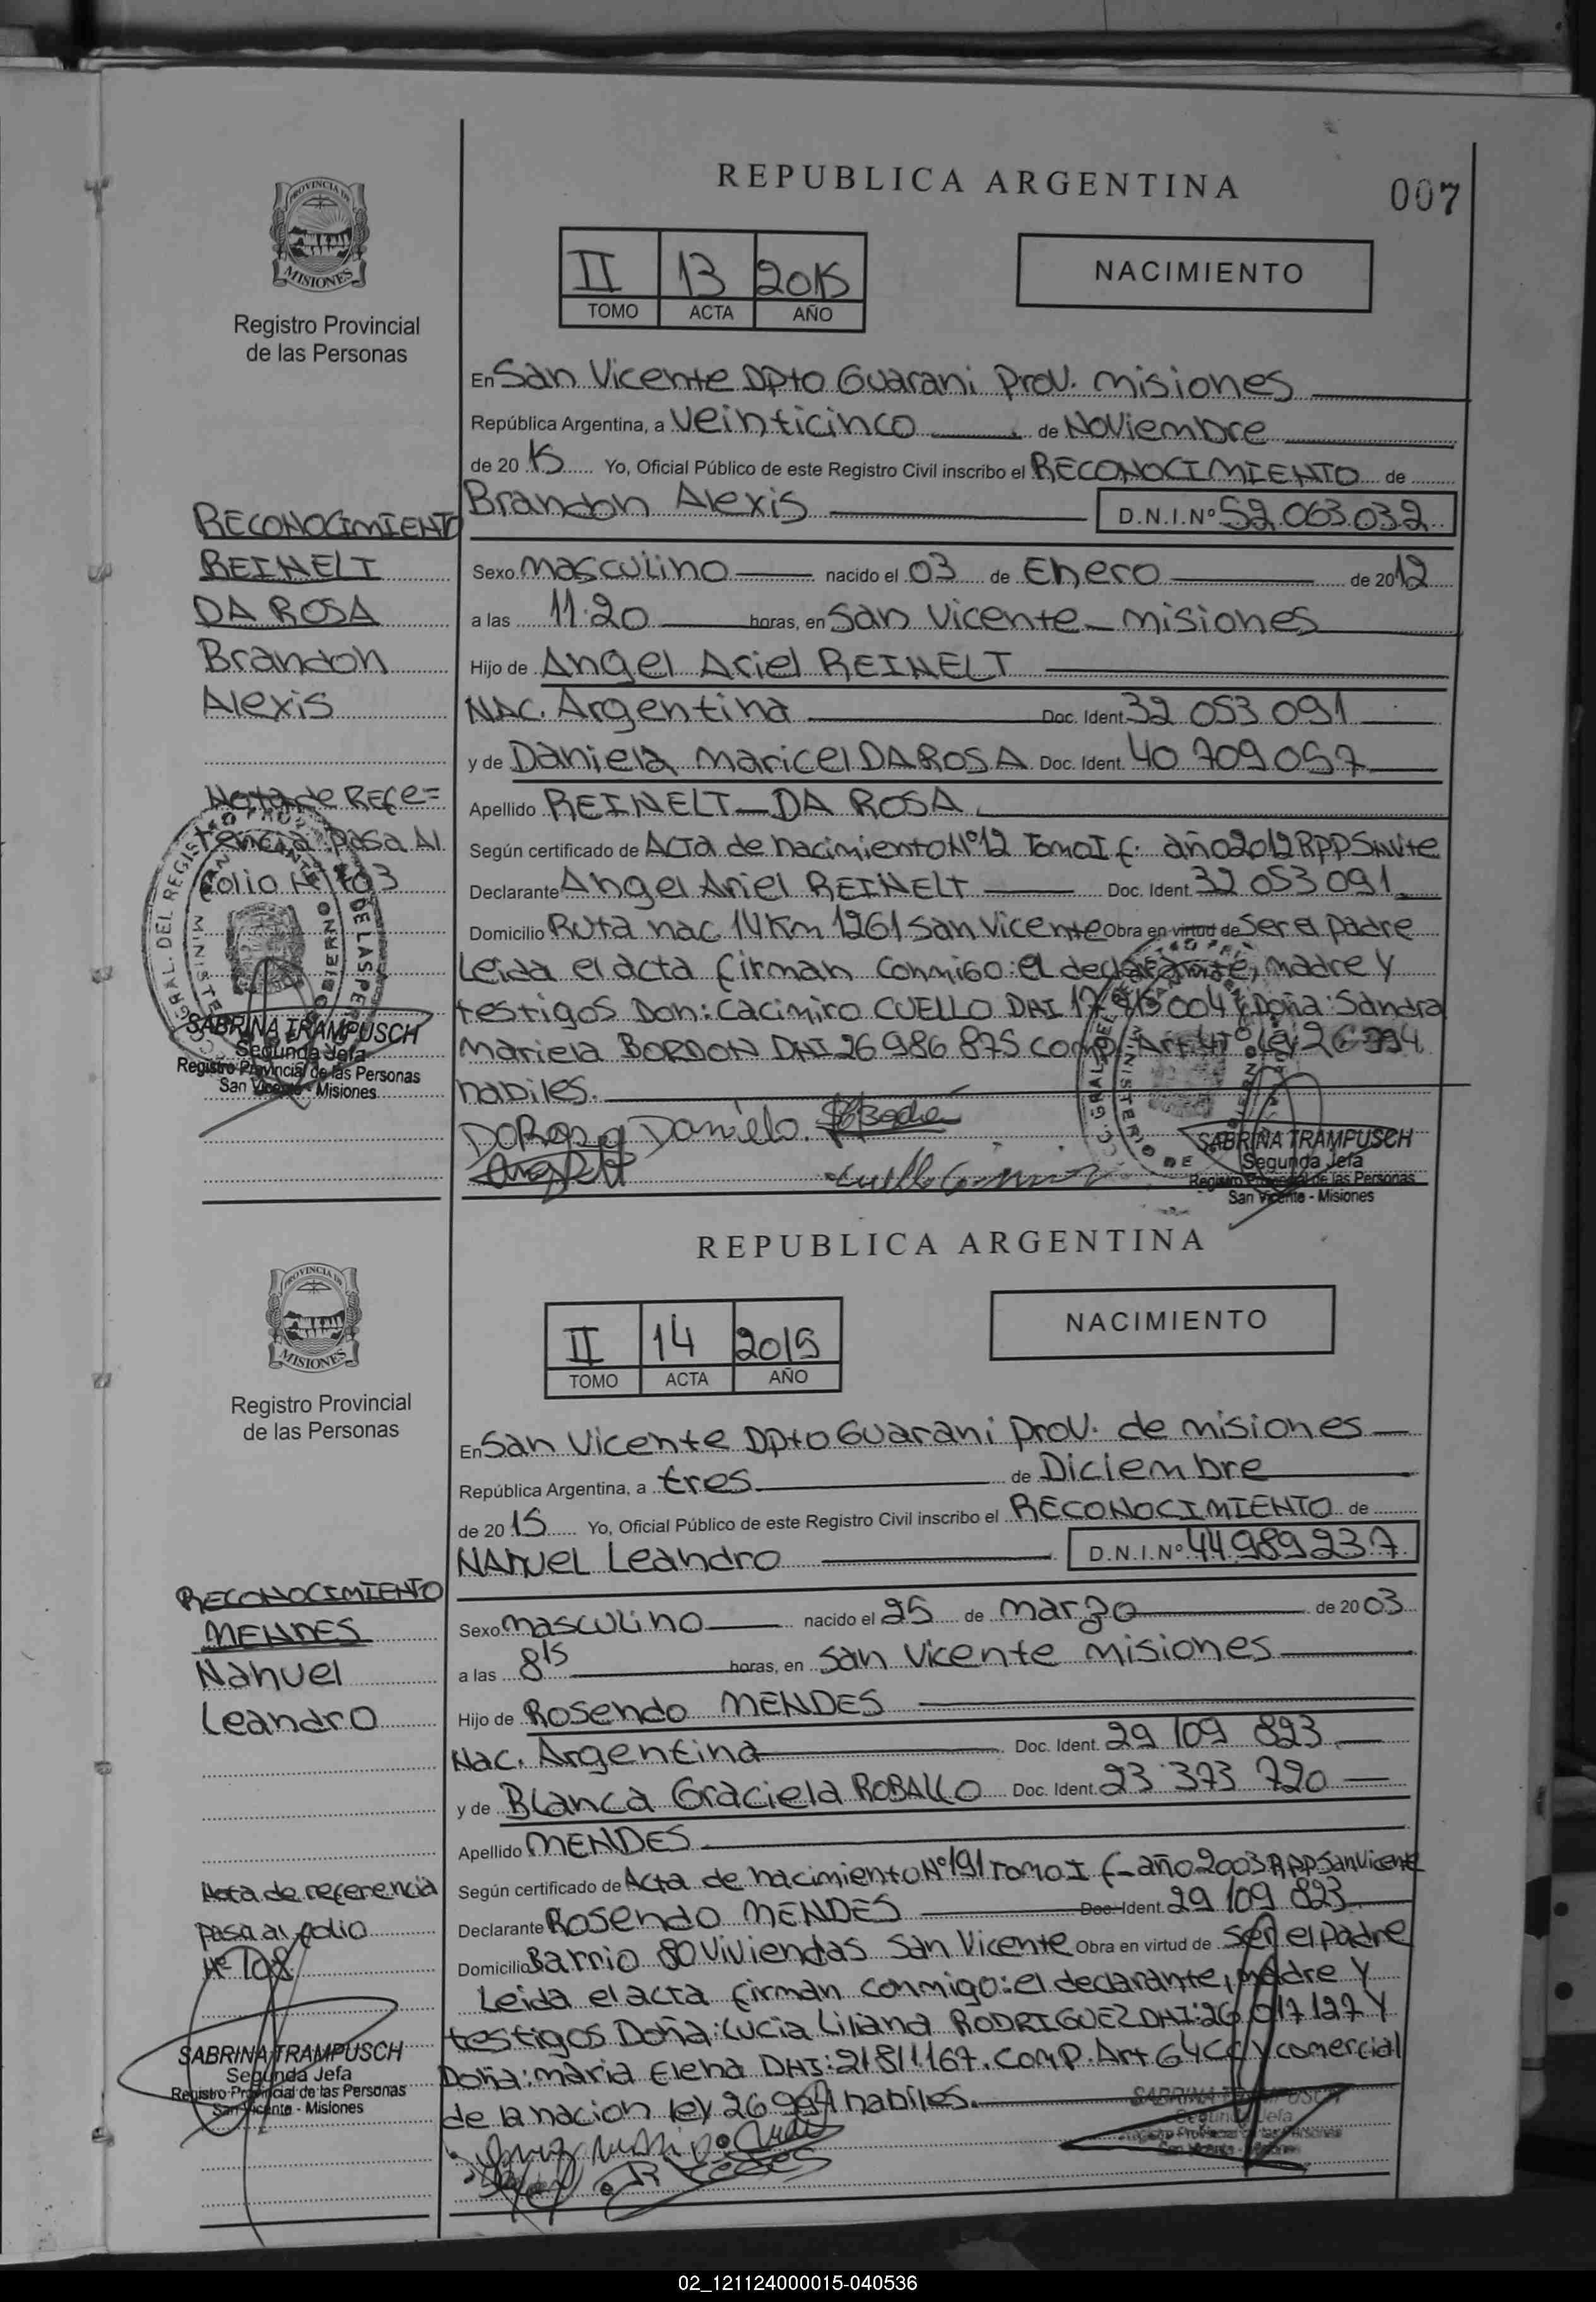 REPUBLICA ARGENTINA
007
PROVINCIA DE
MISIONES
Registro Provincial
de las Personas
II 13 2015
TOMO ACTA AÑO
NACIMIENTO
En San Vicente Dpto Guarani Prov. misiones
República Argentina, a veinticinco de Noviembre
de 20 15 Yo, Oficial Público de este Registro Civil inscribo el RECONOCIMIENTO de
Brandon Alexis D.N.I.Nº 52.063.032
Sexo masculino nacido el 03 de Enero de 2012
a las 11:20 horas, en San Vicente - misiones
Hijo de Angel Ariel REINELT
NAC. Argentina Doc. Ident. 32 053 091
y de Daniela Maricel DA ROSA Doc. Ident. 40 709 057
Apellido REINELT - DA ROSA
Según certificado de ACTA de nacimiento Nº12 Tomo I f. año 2012 RPP SnVte
Declarante Angel Ariel REINELT Doc. Ident. 32 053 091
Domicilio Ruta nac 14 Km 1261 San Vicente Obra en virtud de Ser el padre
Leida el acta firman conmigo: el declarante, madre y
testigos Don: Cacimiro CUELLO DNI 17 004 y Doña: Sandra
Mariela BORDON DNI 26 986 875 comp. Art. Ley 26 994
habiles.
RECONOCIMIENTO
REINELT
DA ROSA
Brandon
Alexis
Nota de Refe=
rencia Pasa Al
Folio Nº 103
SABRINA TRAMPUSCH
Segunda Jefa
Registro Provincial de las Personas
San Vicente - Misiones
DaRosa Daniela.
SABRINA TRAMPUSCH
Segunda Jefa
Registro Provincial de las Personas
San Vicente - Misiones
REPUBLICA ARGENTINA
PROVINCIA DE
MISIONES
Registro Provincial
de las Personas
II 14 2015
TOMO ACTA AÑO
NACIMIENTO
En San Vicente Dpto Guarani prov. de misiones
República Argentina, a tres de Diciembre
de 20 15 Yo, Oficial Público de este Registro Civil inscribo el RECONOCIMIENTO de
NAHUEL Leandro D.N.I.Nº 44.989.237
Sexo masculino nacido el 25 de marzo de 2003
a las 8 15 horas, en San Vicente misiones
Hijo de Rosendo MENDES
Nac. Argentina Doc. Ident. 29 109 823
y de Blanca Graciela ROBALLO Doc. Ident. 23 373 720
Apellido MENDES
Según certificado de Acta de nacimiento Nº191 Tomo I f - año 2003 RPP San Vicente
Declarante Rosendo MENDES Doc. Ident. 29 109 823
Domicilio Barrio 80 Viviendas San Vicente Obra en virtud de Ser el Padre
Leida el acta firman conmigo: el declarante, madre y
testigos Doña: Lucia Liliana RODRIGUEZ DNI: 26 017 127 y
Doña: maria Elena DNI: 21811167. Comp. Art 64 CC y comercial
de la nacion ley 26 994 habiles.
RECONOCIMIENTO
MENDES
Nahuel
Leandro
Nota de referencia
pasa al folio
Nº 108
SABRINA TRAMPUSCH
Segunda Jefa
Registro Provincial de las Personas
San Vicente - Misiones
SABRINA TRAMPUSCH
Segunda Jefa
02_121124000015-040536